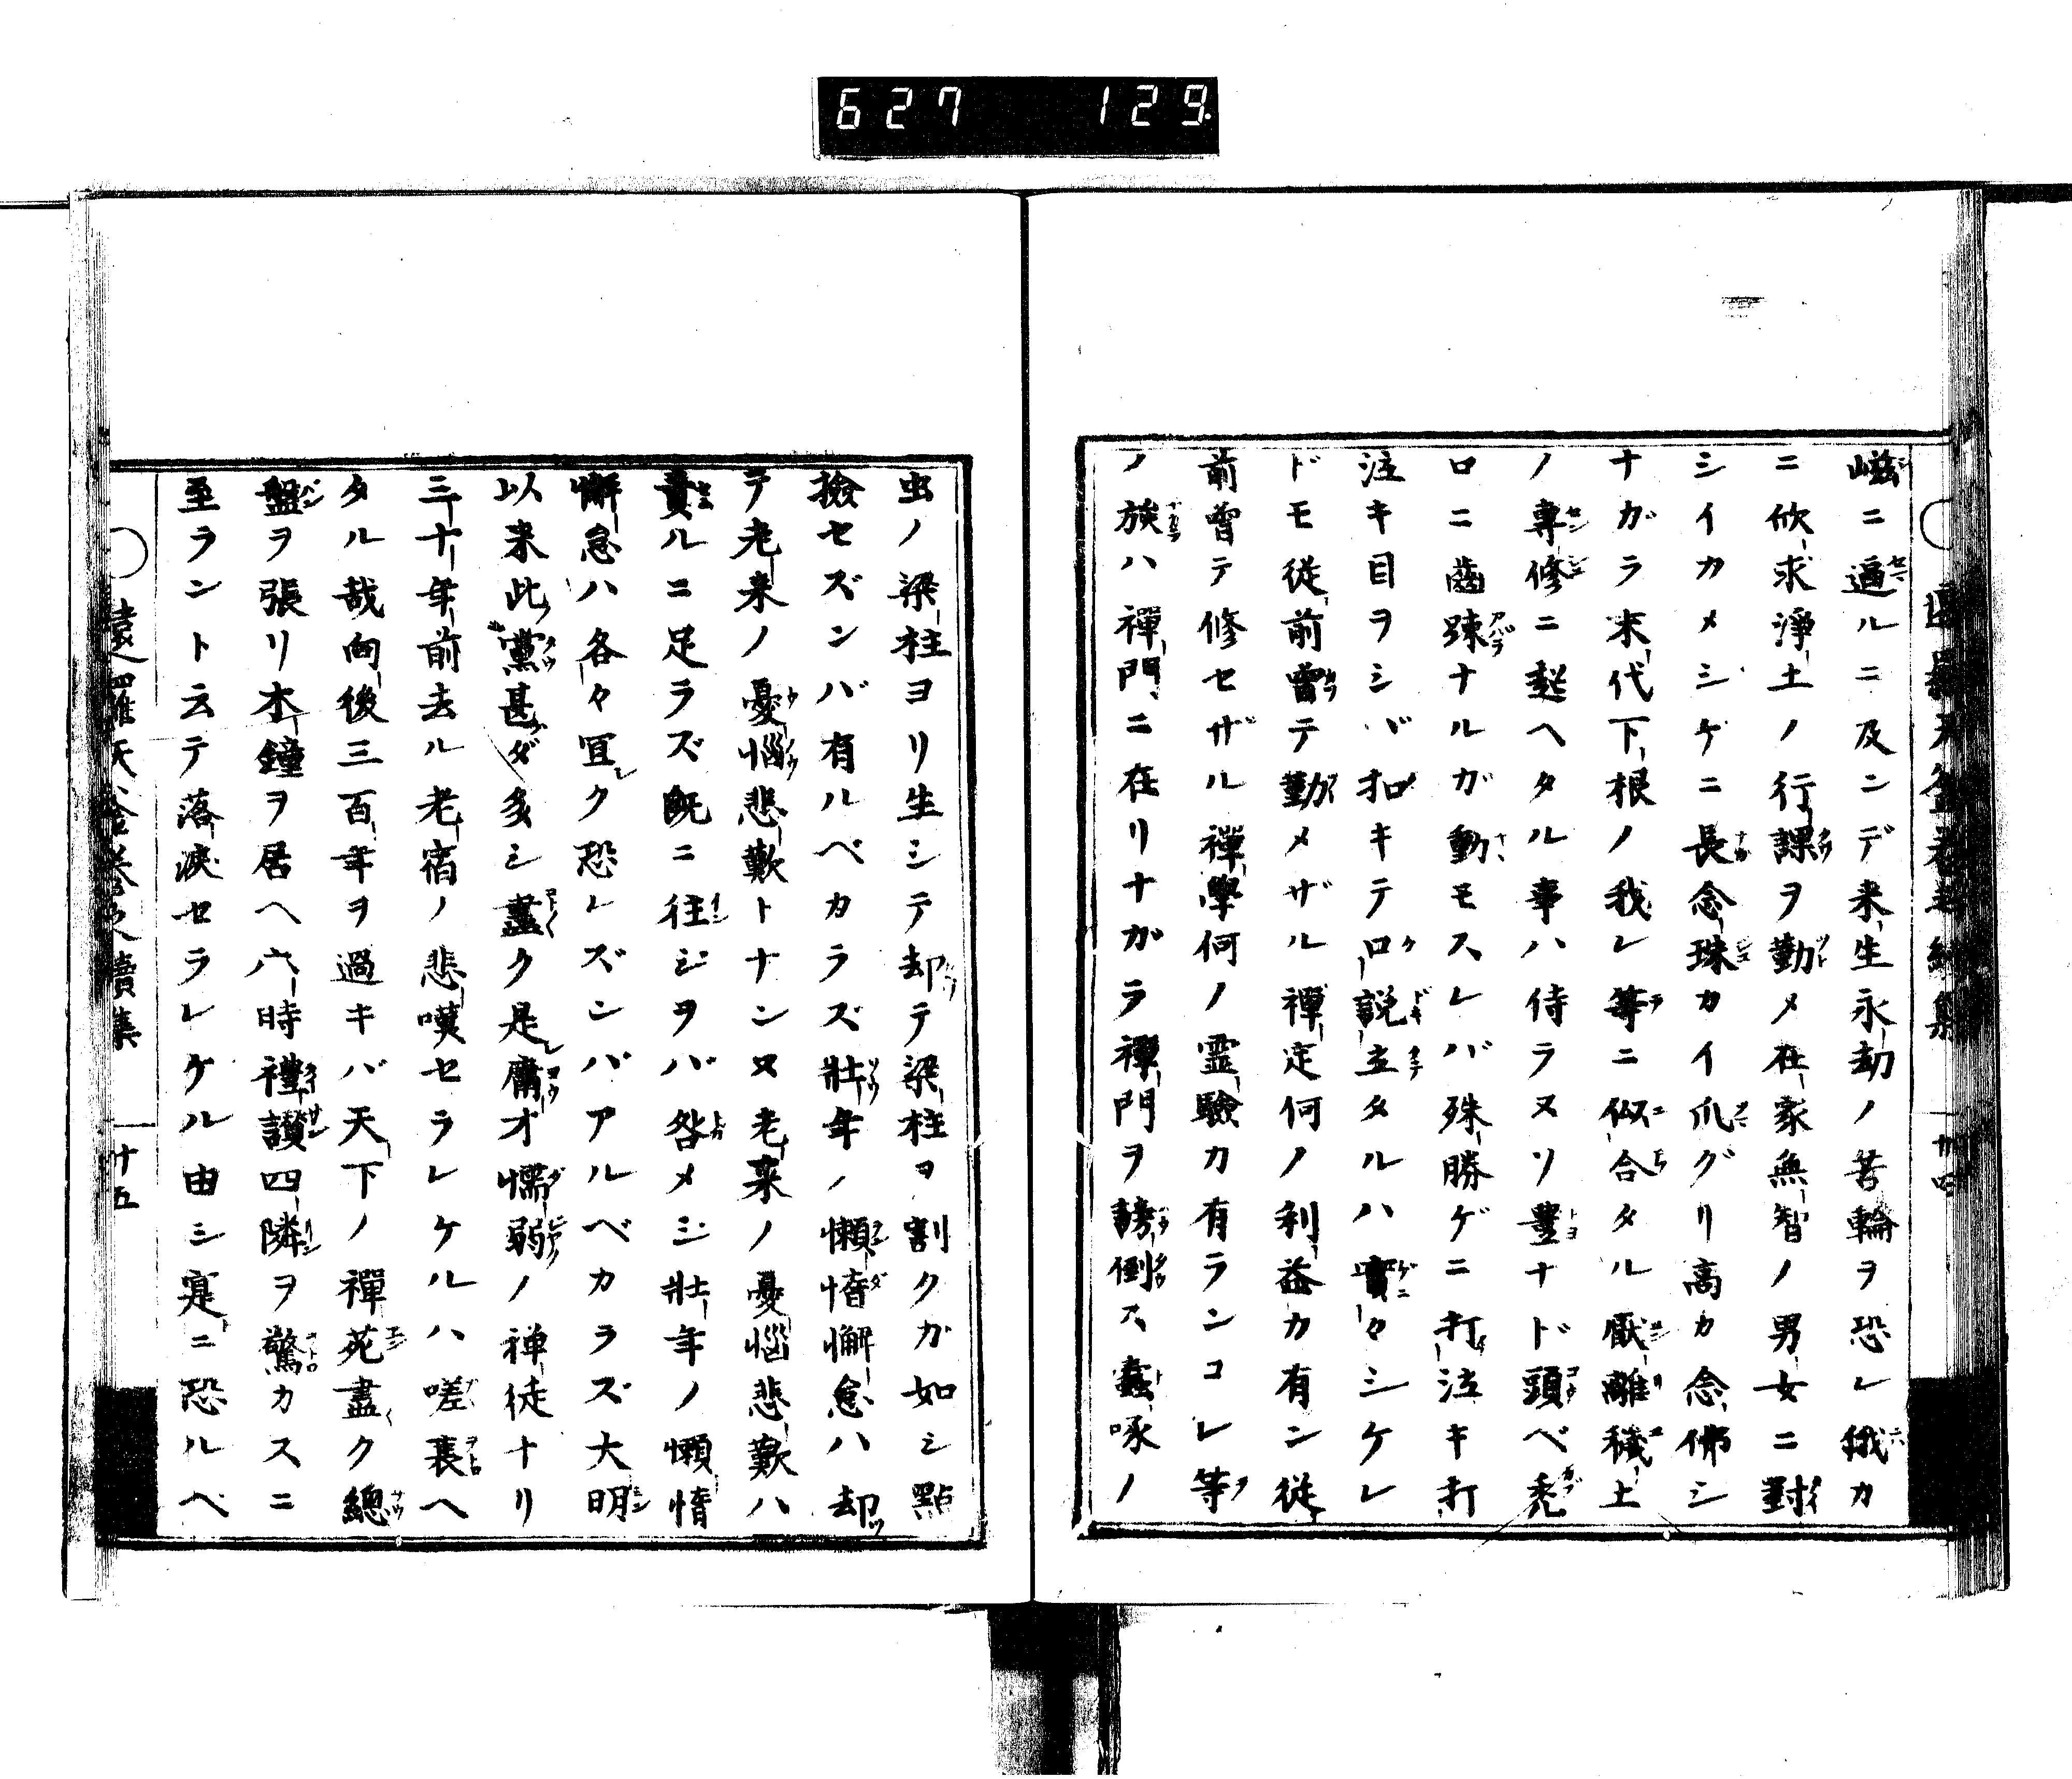 627 129
嵫ニ逼ルニ及ンデ来生永劫ノ苦輪ヲ恐レ俄カ
ニ欣求淨土ノ行課ヲ勤メ在家無智ノ男女ニ對
シイカメシゲニ長念珠カイ爪グリ高カ念佛シ
ナガラ末代下根ノ我レ等ニ似合タル厭離穢土
ノ專修ニ超ヘタル事ハ侍ラヌソ豊ナド頭ベ禿
ロニ齒踈ナルガ動モスレバ殊勝ゲニ打泣キ打
泣キ目ヲシバ扣キテ口説立タルハ實々シケレ
ドモ從前曾テ勤メザル禪定何ノ利益カ有ン從
前曾テ修セザル禪學何ノ霊驗カ有ランコレ等
ノ族ハ禪門ニ在リナガラ禪門ヲ謗倒ス蠧啄ノ
虫ノ梁柱ヨリ生シテ却テ梁柱ヲ割クカ如シ點
撿セズンバ有ルベカラズ壯年ノ懶惰懈怠ハ却
テ老来ノ憂惱悲歎トナンヌ老来ノ憂惱悲歎ハ
責ルニ足ラズ既ニ往ジヲバ咎メシ壯年ノ懶惰
懈怠ハ各々冝ク恐レズンバアルベカラズ大明
以来此黨甚ダ多シ盡ク是庸才懦弱ノ禅徒ナリ
三十年前去ル老宿ノ悲嘆セラレケルハ嗟衰ヘ
タル哉向後三百年ヲ過キバ天下ノ禪苑盡ク總
盤ヲ張リ木鐘ヲ居ヘ六時禮讃四隣ヲ驚カスニ
至ラント云テ落淚セラレケル由シ寔ニ恐ルベ
遠羅天釜卷之續集 廿五